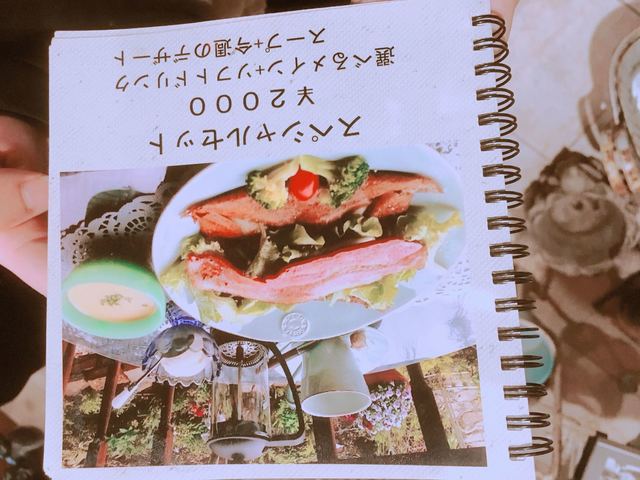 スペシャルセット
￥２０００
選べるメイン+ソフトドリンク
スープ+今週のデザート